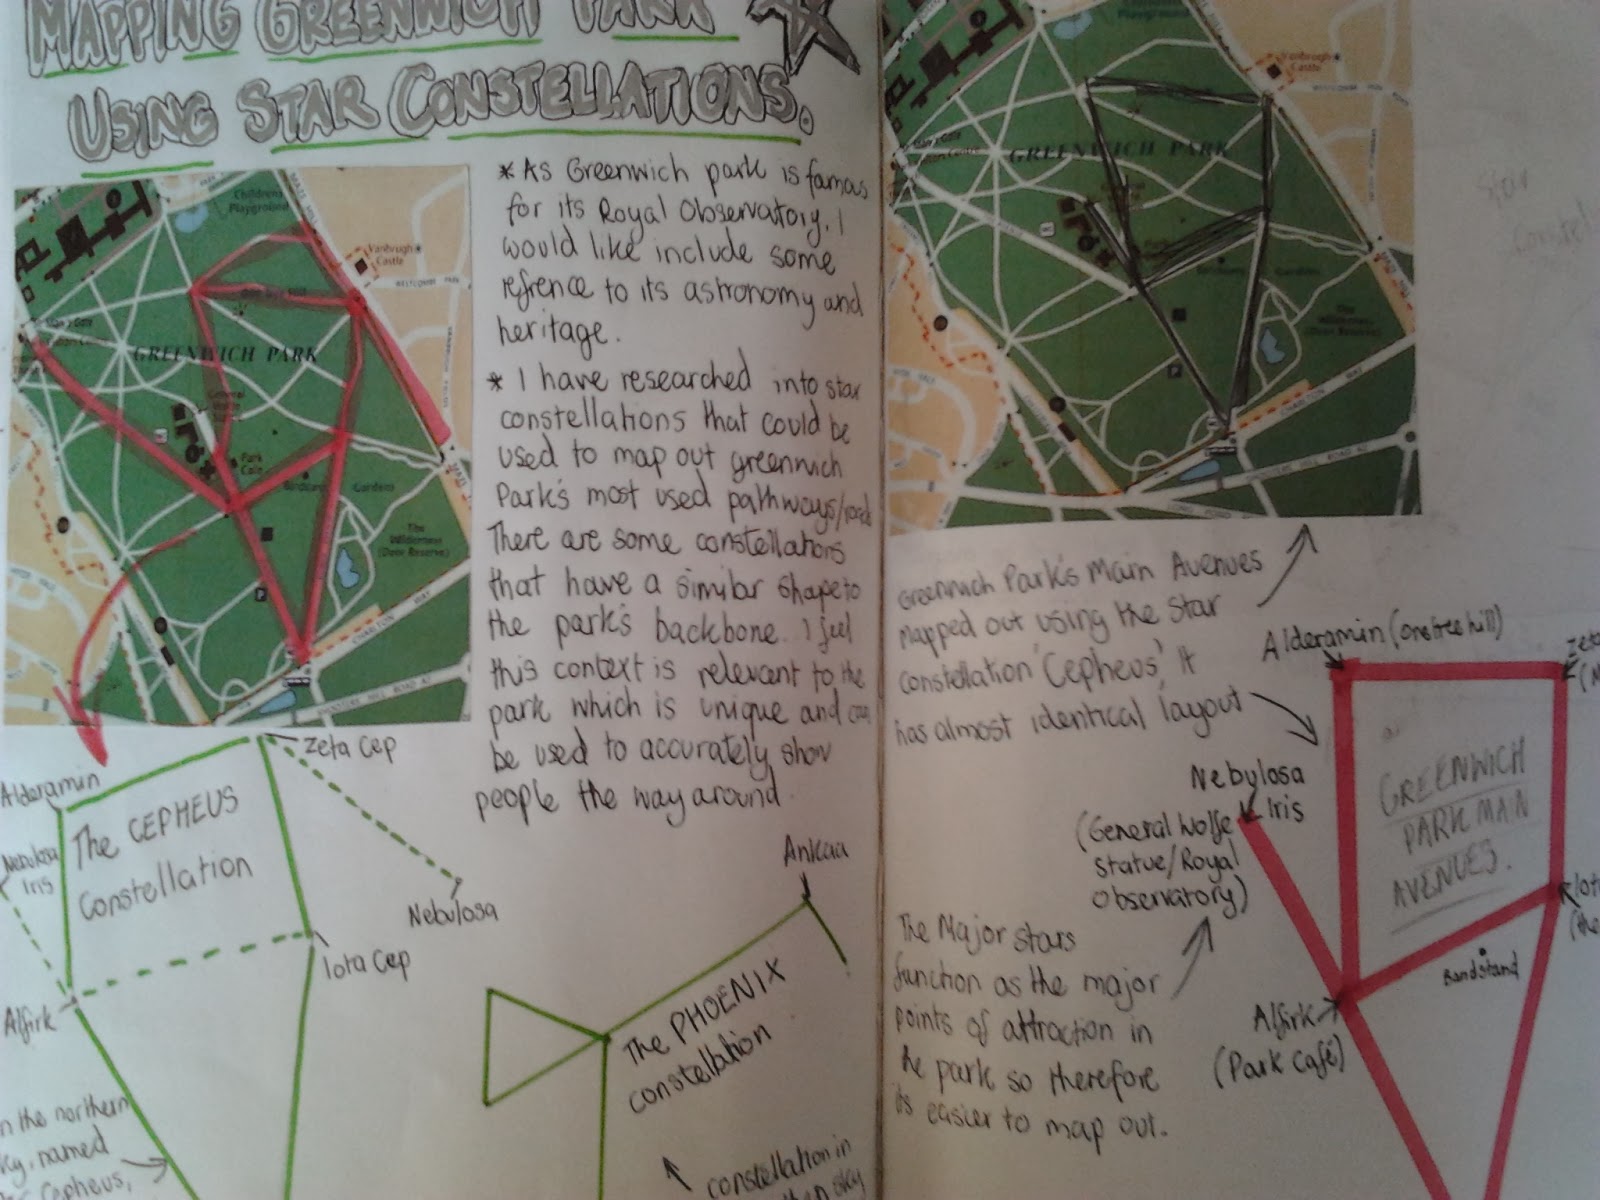 MAPPING GREENWICH PARK
USING STAR CONSTELLATIONS.
Childrens
Playground
Vanbrugh
Castle
WESTCOMBE PARK
MAZE HILL
GREENWICH PARK
Park
Cafe
Gardens
The
Wilderness
(Deer Reserve)
CHARLTON WAY
SHOOTERS HILL ROAD A2
* As Greenwich park is famous
for its Royal Observatory, I
would like include some
refrence to its astronomy and
heritage.
* I have researched into star
constellations that could be
used to map out greenwich
Park's most used pathways/roads
There are some constellations
that have a similar shape to
the park's backbone. I feel
this context is relevant to the
park which is unique and can
be used to accurately show
people the way around.
Zeta Cep
Alderamin
The CEPHEUS
Constellation
Nebulosa
Iris
Nebulosa
Iota Cep
Alfirk
n the northern
ky, named
Cepheus,
Ankaa
The PHOENIX
constellation
constellation in
sky
Playground
Vanbrugh
Castle
GREENWICH PARK
Gardens
The
Wilderness
(Deer Reserve)
CHARLTON WAY
Star
Greenwich Park's Main Avenues
mapped out using the star
constellation 'Cepheus', it
has almost identical layout
Alderamin (one tree hill)
Zeta
Nebulosa
Iris
(General Wolfe
statue/Royal
Observatory)
GREENWICH
PARK MAN
AVENUES.
Iota
(the
Bandstand
Alfirk
(Park café)
The Major stars
function as the major
points of attraction in
the park so therefore
its easier to map out.